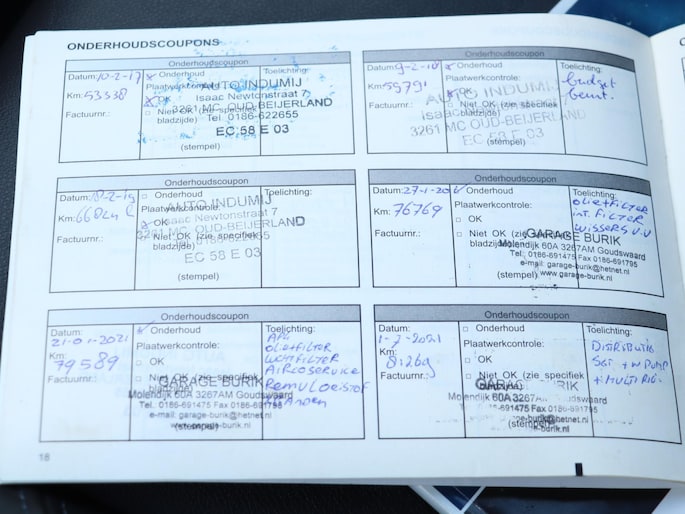 ONDERHOUDSCOUPONS
Onderhoudscoupon
Datum: 10-2-17
Onderhoud
Toelichting:
Km: 53338
Plaatwerkcontrole:
OK
Niet OK (zie specifiek bladzijde)
Factuurnr.:
AUTO INDUMIJ
Isaac Newtonstraat 7
3261 MC OUD-BEIJERLAND
Tel. 0186-622655
EC 58 E 03
(stempel)
Onderhoudscoupon
Datum: 9-2-18
Onderhoud
Toelichting:
Km:
Plaatwerkcontrole:
budget
beurt.
OK
Niet OK (zie specifiek bladzijde)
Factuurnr.:
AUTO INDUMIJ
Isaac Newtonstraat 7
3261 MC OUD-BEIJERLAND
EC 58 E 03
(stempel)
Onderhoudscoupon
Datum:
Onderhoud
Toelichting:
Km:
Plaatwerkcontrole:
OK
Niet OK (zie specifiek bladzijde)
Factuurnr.:
AUTO INDUMIJ
Isaac Newtonstraat 7
3261 MC OUD-BEIJERLAND
Tel. 0186-622655
EC 58 E 03
(stempel)
Onderhoudscoupon
Datum: 27-1-
Onderhoud
Toelichting:
Km: 76769
Plaatwerkcontrole:
oliefilter
int. filter
wissers V.V
OK
Niet OK (zie specifiek bladzijde)
Factuurnr.:
GARAGE BURIK
Molendijk 60A 3267AM Goudswaard
Tel.: 0186-691475 Fax 0186-691795
e-mail: garage-burik@hetnet.nl
www.garage-burik.nl
(stempel)
Onderhoudscoupon
Datum:
21-01-2021
Onderhoud
Toelichting:
Km:
79589
Plaatwerkcontrole:
APK
oliefilter
luchtfilter
Aircoservice
Remvloeistof
OK
Niet OK (zie specifiek bladzijde)
Factuurnr.:
GARAGE BURIK
Molendijk 60A 3267AM Goudswaard
Tel.: 0186-691475 Fax 0186-691795
e-mail: garage-burik@hetnet.nl
www.garage-burik.nl
(stempel)
Onderhoudscoupon
Datum:
1-7-2021
Onderhoud
Toelichting:
Km:
81269
Plaatwerkcontrole:
Distributie
Set + W pomp
OK
Niet OK (zie specifiek bladzijde)
Factuurnr.:
GARAGE BURIK
Molendijk 60A 3267AM Goudswaard
691475 Fax 0186-691795
garage-burik@hetnet.nl
burik.nl
(stempel)
18